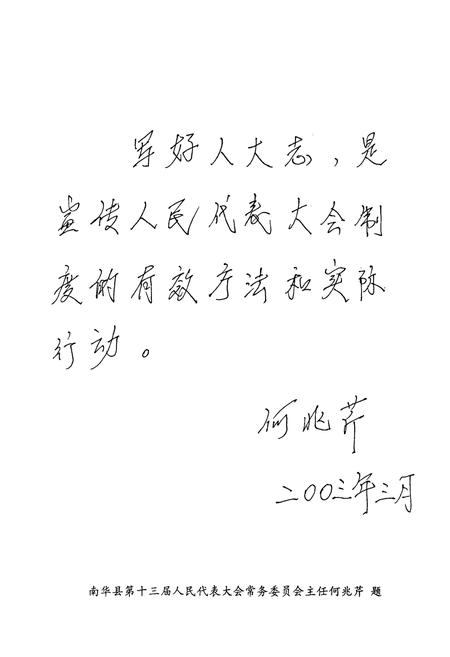 写好人大志，是
宣传人民代表大会制
度的有效方法和实际
行动。
何兆芹
二00三年三月
南华县第十三届人民代表大会常务委员会主任何兆芹 题